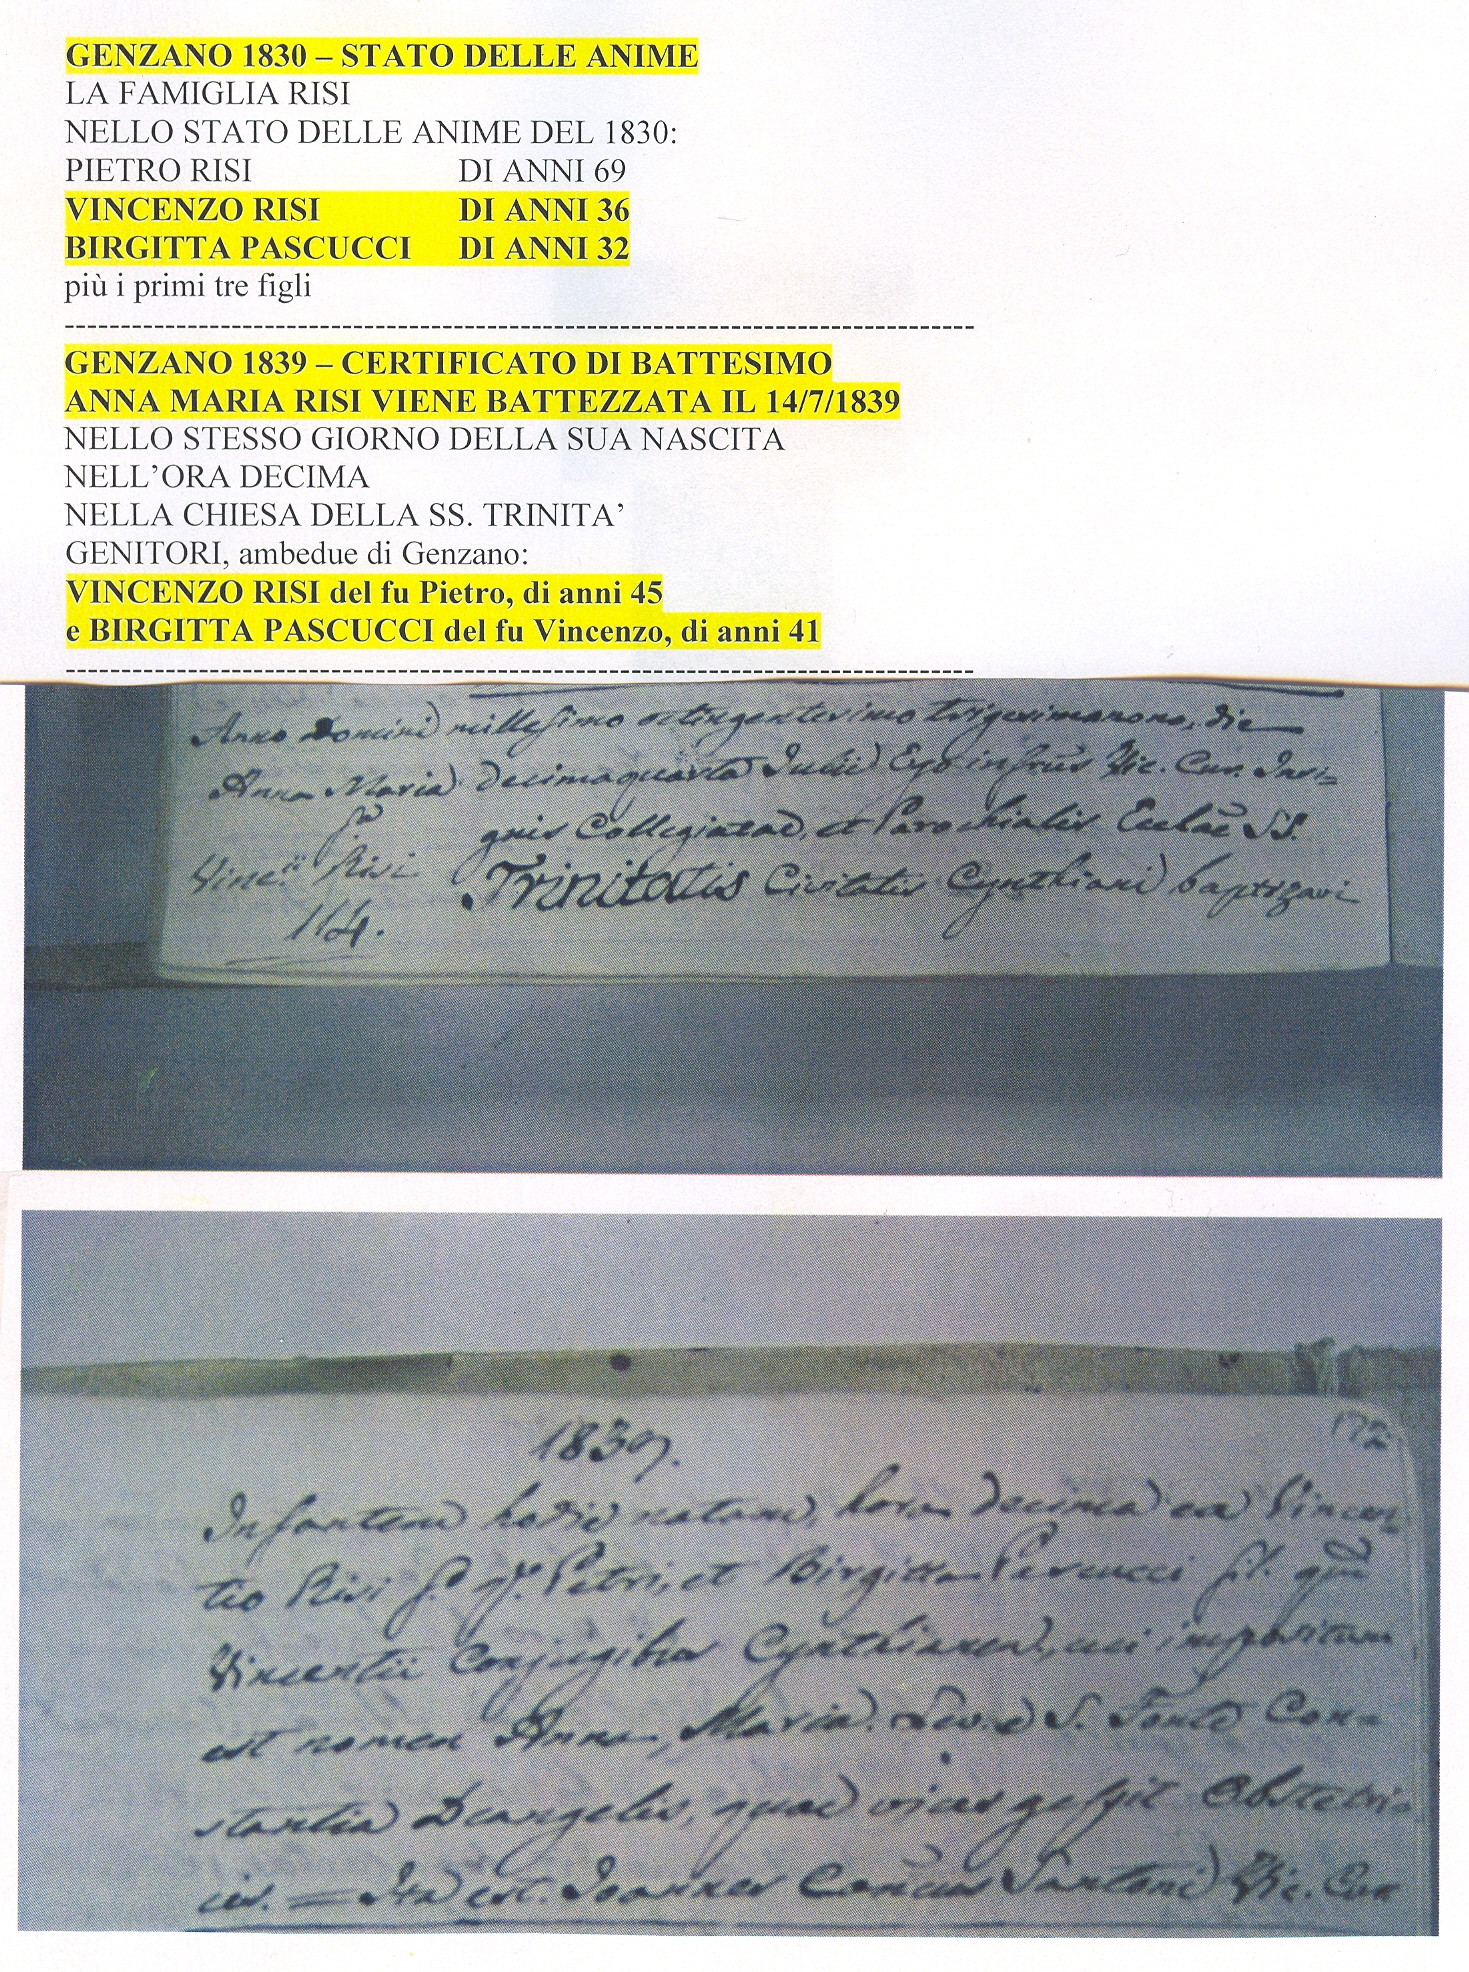 GENZANO 1830 – STATO DELLE ANIME
LA FAMIGLIA RISI
NELLO STATO DELLE ANIME DEL 1830:
PIETRO RISI DI ANNI 69
VINCENZO RISI DI ANNI 36
BIRGITTA PASCUCCI DI ANNI 32
più i primi tre figli
GENZANO 1839 – CERTIFICATO DI BATTESIMO
ANNA MARIA RISI VIENE BATTEZZATA IL 14/7/1839
NELLO STESSO GIORNO DELLA SUA NASCITA
NELL’ORA DECIMA
NELLA CHIESA DELLA SS. TRINITA’
GENITORI, ambedue di Genzano:
VINCENZO RISI del fu Pietro, di anni 45
e BIRGITTA PASCUCCI del fu Vincenzo, di anni 41
Anno Domini millesimo octingentesimo trigesimonono, die
Anna Maria decimaquarta Julii Ego infrus Vic. Cur. Insi=
gnis Collegiatae, et Parochialis Eccla͞e SS.
Vinc.ii Risi Trinitatis Civitatis Cynthiani baptizavi
114.
1839. 172
Infantem hodie natam, hora decima ex Vincen
tio Risi f. q. Petri, et Birgitta Pescucci fil. qm
Vincentii Conjugibus Cynthianen, cui impositum
est nomen Anna, Maria. de S. Fonte Con=
stantia Deangelis, quae vices gessit Obstetri
cis. = Ita est. Joannes Can͞cus Santoni Vic. Cur